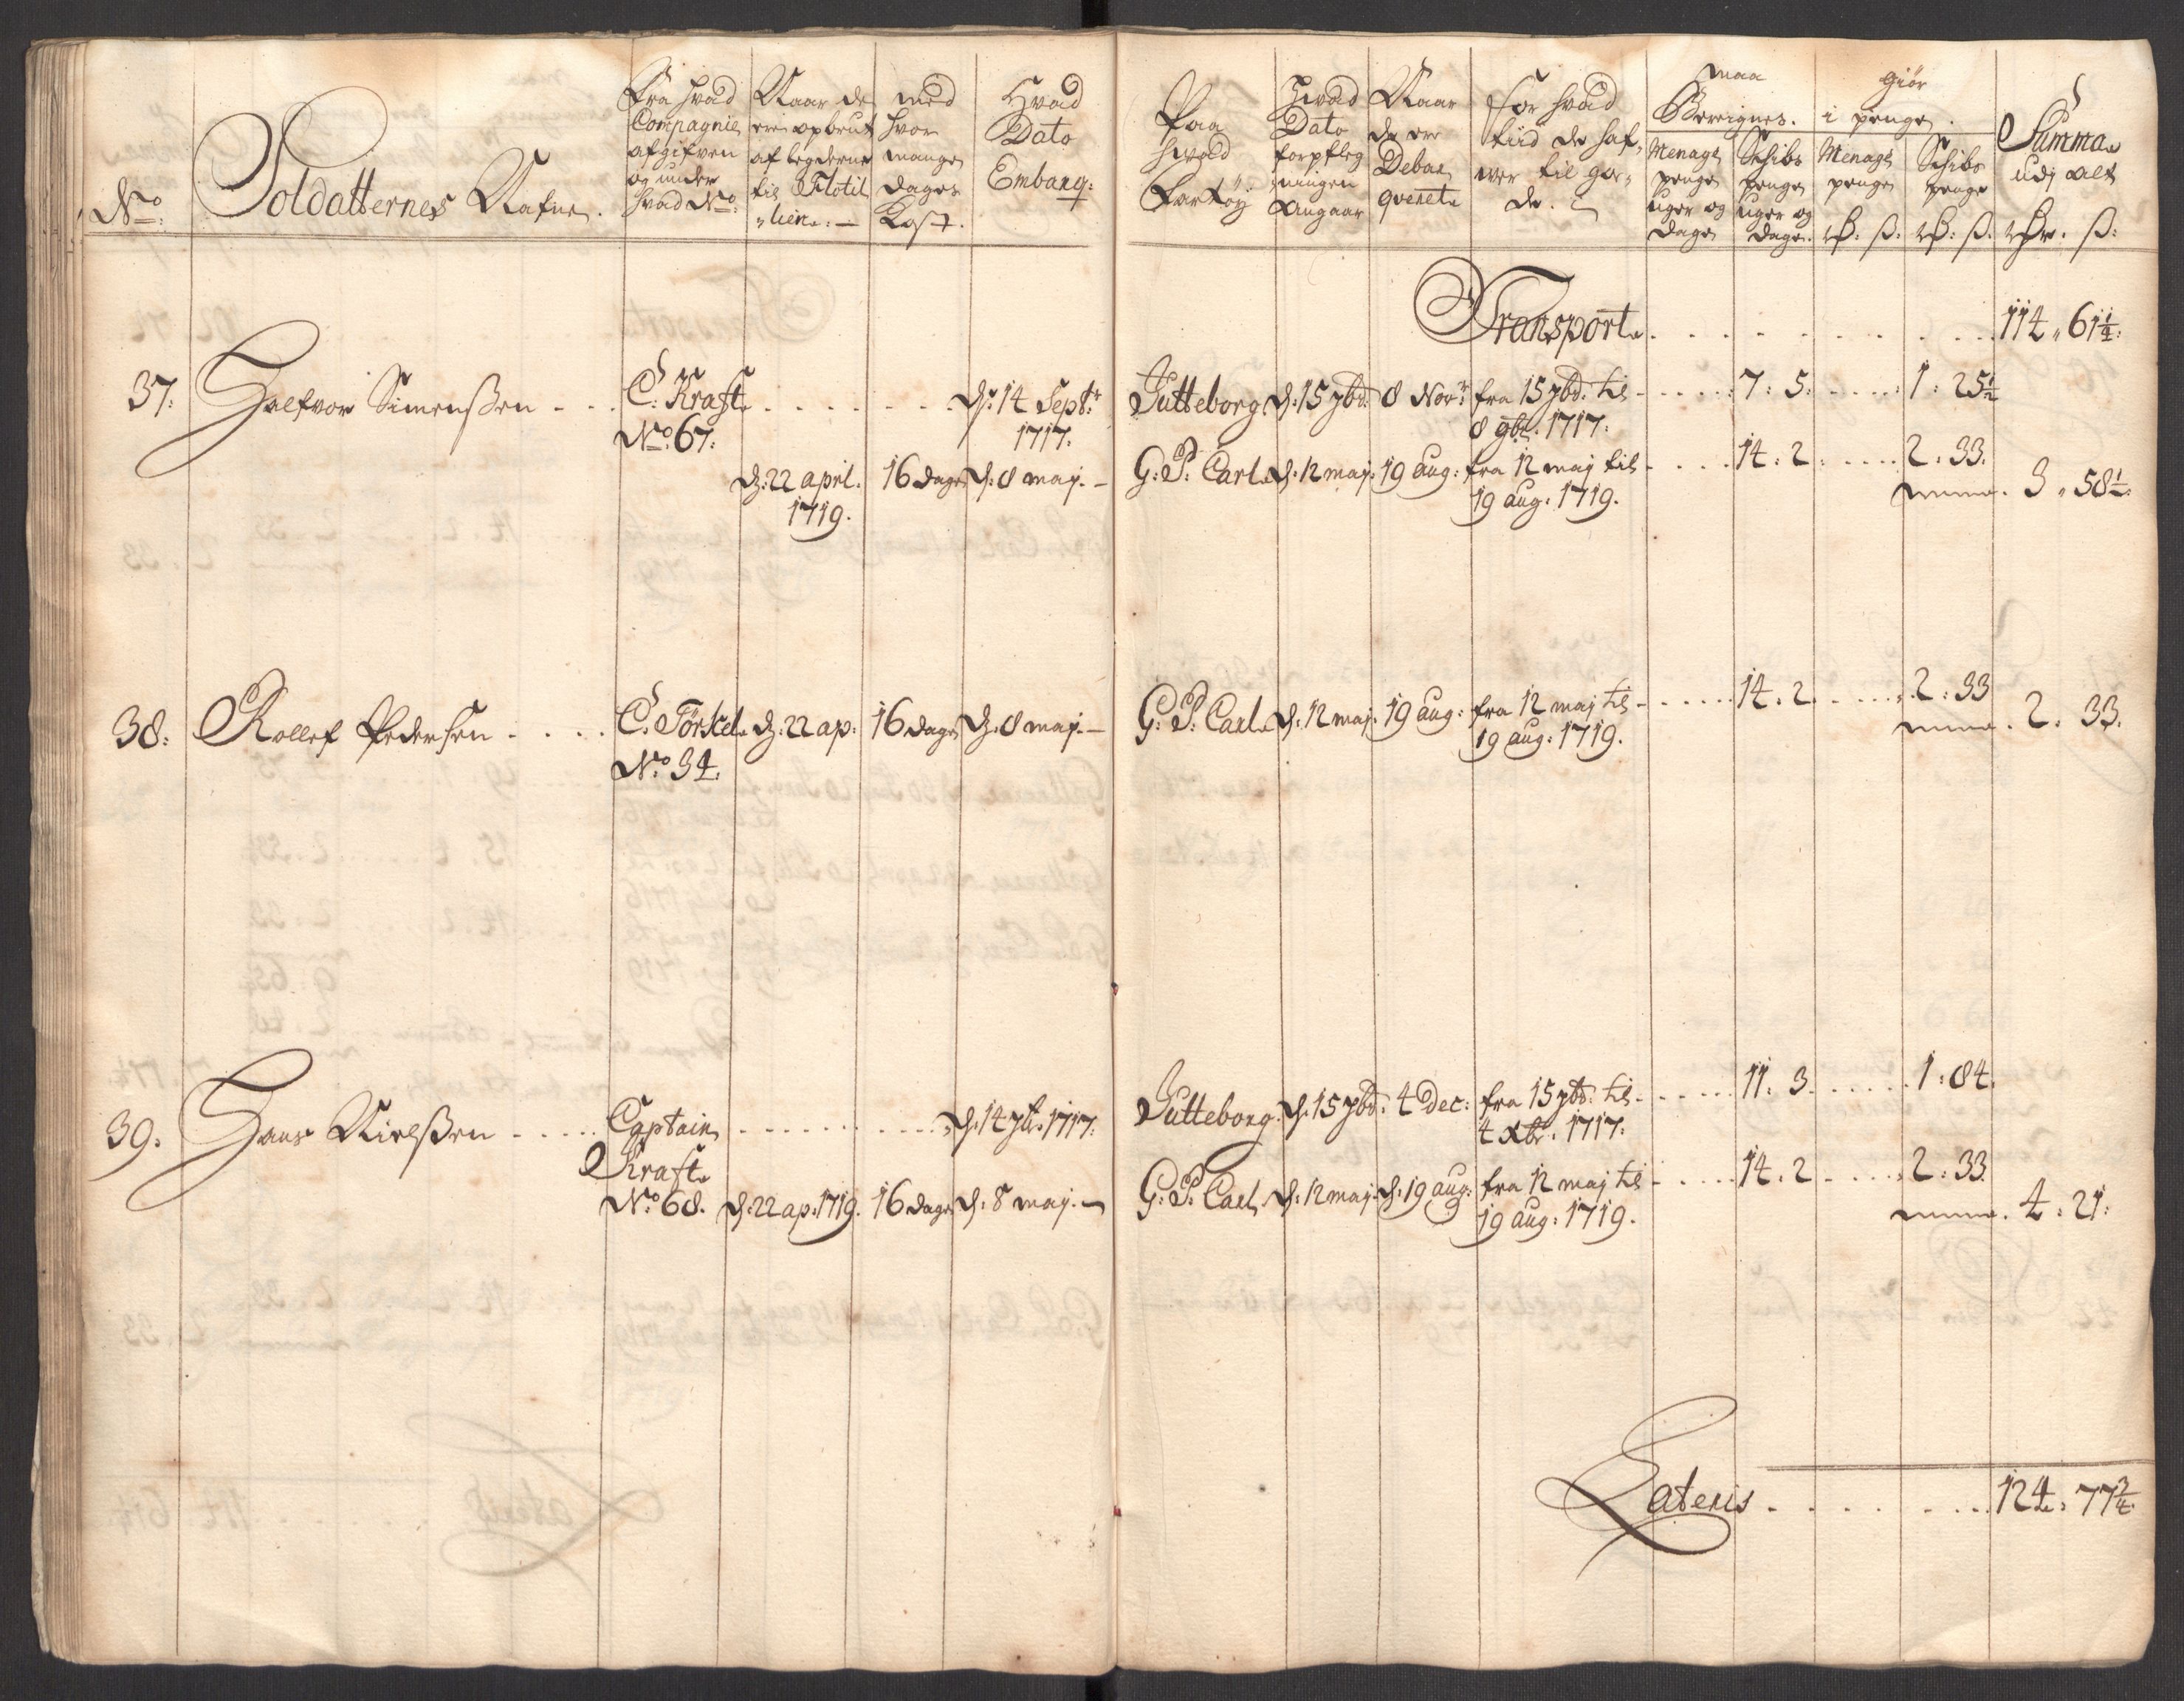 No:
Soldatternes Nafne.
Fra hvad
Compagnie
afgifven
og under
hvad No:
Naar de
ere opbrut
af legderne
til Flotil
"lien: —
med
hvor
mange
dages
Kost.
Hvad
Dato
Embarq:
Paa
hvad
Fartöy
Hvad
Dato
forpfleg
ningen
Angaar
Naar
de ere
Debar
queret
for hvad
tiid de haf,
ver til go,
de.
maa
Bereignes.
Menage
penge
uger og
dage
Schibs
penge
uger og
dage.
Giör
i penge.
Menage
penge
Schibs
penge
Summa
udj alt
Transport . . . . . . . . . 114 " 61 1/4:
37: Halfvor Simenßen - . . C. Kraft . . . . . . . . d: 14 Septr: Gutteborg d: 15 7br: 8 Novr: fra 15 7br: til - . . . . : 7: 5: - . . . : 1: 25 1/2
No: 67: 1717. 8 9br: 1717:
d: 22 april. 16 dage d: 8 maj. - G: P: Carl d: 12 maj. 19 aug: fra 12 maj til - . . . 14: 2: . . . . 2: 33.
1719. 19 aug: 1719. 3 " 58 1/2:
38: Rollef Pedersen . . . . C. Törkel d: 22 ap: 16 dage d: 8 maj. — G: P: Carl d: 12 maj: 19 aug: fra 12 maj til - . . . . . 14. 2. . . . . . 2: 33
No: 34. 19 aug: 1719. 2: 33.
39. Hans Nielßen - . . . . Captain . . . . . . . . . d: 14 7br: 1717: Gutteborg. d: 15 7br: 4 Dec: fra 15 7br: til - . . . . 11: 3. . . . . 1: 84.
Kraft 4 Xbr: 1717:
No: 68. d: 22 ap: 1719. 16 dage d: 8 maj. — G: P: Carl d: 12 maj. d: 19 aug: fra 12 maj til - . . . . 14. 2 . . . . . 2: 33.
19 aug: 1719. 4: 21:
Lateris . . . . . . . . 124: 77 3/4.